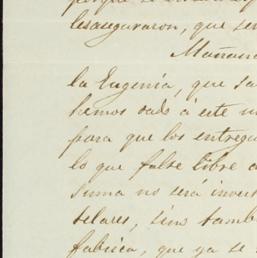 lesaseguraron, que ser
Mañana
la Eugenía, que sa
hemos dado á este
para que los entregu
lo que falte libre
suma no será inver
telares, sino tamb
fabrica, que ya se